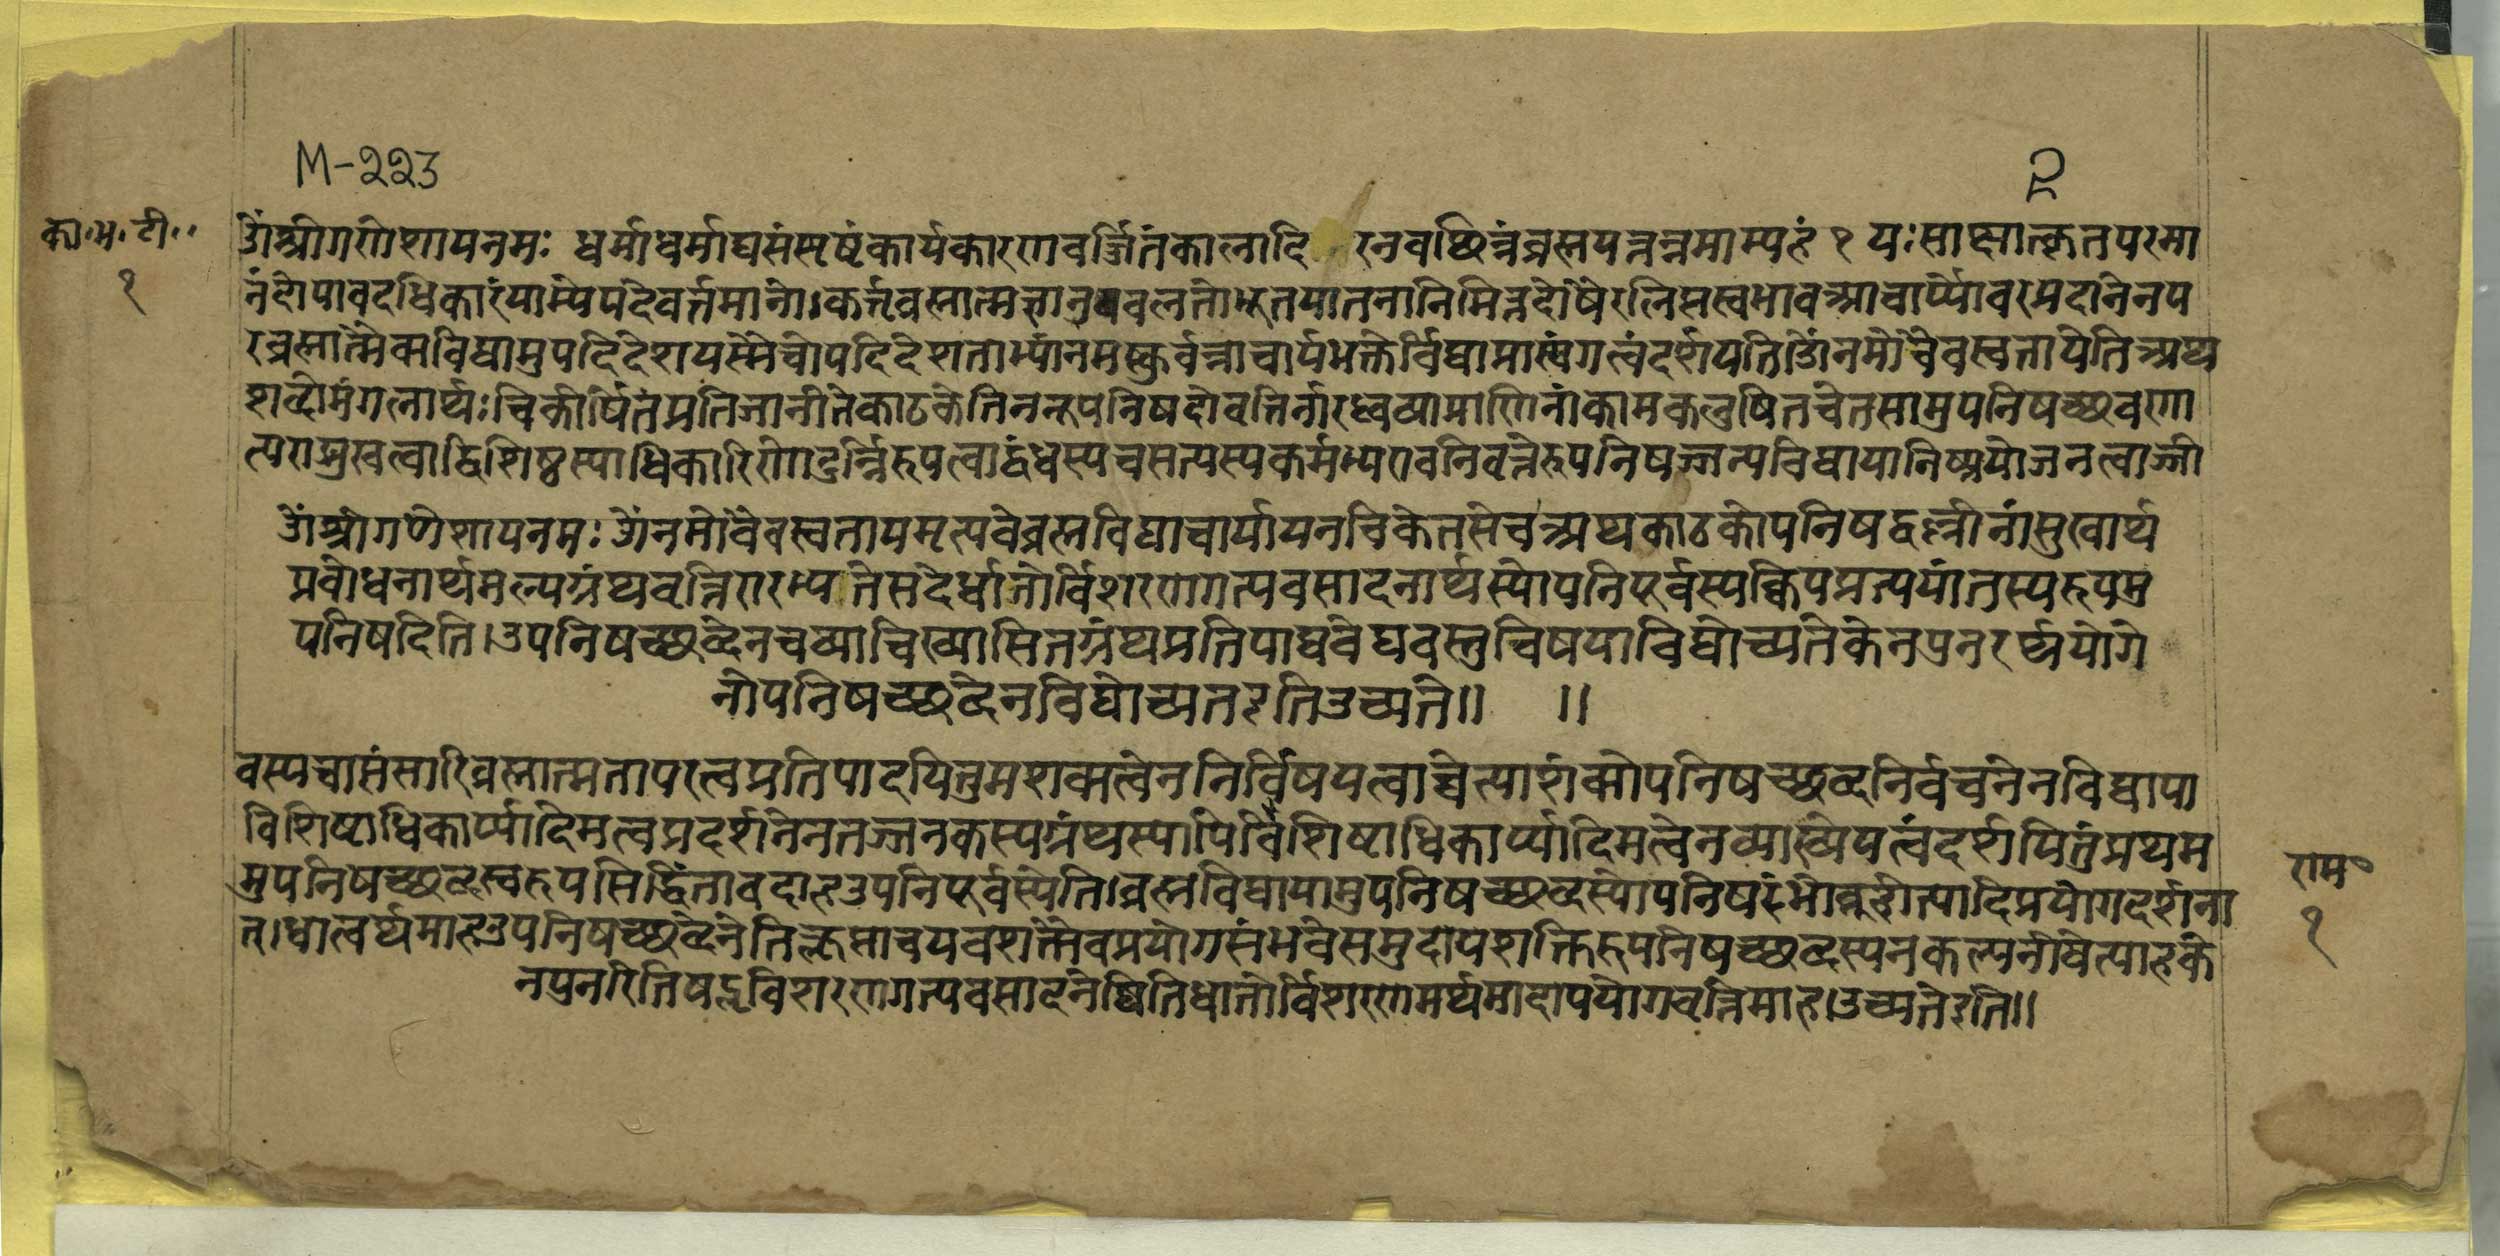 M-२२३
१
का॰भ॰टी॰॰
१
ॐश्रीगणेशायनमः धर्माधर्माद्यसंसृष्टंकार्यकारणवर्ज्जितंकालादि रनवच्छिन्नंब्रह्मयत्तन्नमाम्यहं १ यःसाक्षात्कृतपरमा
नंदोयावदधिकारंयाम्येपदेवर्त्तमानो।कर्त्तृब्रह्मात्मत्तानुबवलतोभूतयातनानिमित्तदोषैरलिप्तस्वभावआचार्य्योवरप्रदानेनप
रब्रह्मात्मैक्यविद्यामुपदिदेशयस्मैचोपदिदेशताभ्यांनमस्कुर्वन्नाचार्यभक्तेर्विद्याप्राप्त्यंगत्वंदर्शयतिॐनमोवैवस्वतायेतिअथ
शब्दोमंगलार्थः चिकीर्षितंप्रतिजानीतेकाठकेतिननूपनिषदोवृत्तिर्नारब्धव्याप्राणिनांकामकलुषितचेतसामुपनिषच्छ्रवणा
त्पराङ्मुखत्वाद्विशिष्ठस्याधिकारिणोदुर्न्निरूपत्वाद्बंधस्यचसत्यस्यकर्मभ्यएवनिवृत्तेरुपनिषज्जन्यविद्यायानिष्प्रयोजनत्वाज्जी
ॐश्रीगणेशायनमः ॐनमोवैवस्वतायमृत्यवेब्रह्मविद्याचार्यायनचिकेतसेचअथकाठकोपनिषद्वल्लीनांसुखार्थ
प्रबोधनार्थमल्पग्रंथवृत्तिरारभ्यतेसदेर्धातोर्विशरणगत्यवसादनार्थस्योपनिपूर्वस्यक्विपप्रत्ययांतस्यरूपमु
पनिषदिति।उपनिषच्छब्देनचव्याचिख्यासितग्रंथप्रतिपाद्यवेद्यवस्तुविषयाविद्योच्यतेकेनपुनरर्थयोगे
नोपनिषच्छब्देनविद्योच्यतइतिउच्यते॥ ॥
वस्यचासंसारिब्रह्मात्मतापरत्वप्रतिपादयितुमशक्यत्वेननिर्विषयत्वाच्चेत्याशंक्योपनिषच्छब्दनिर्वचनेनविद्याया
विशिष्टाधिकार्य्यादिमत्वप्रदर्शनेनतज्जनकस्यग्रंथस्यापिविशिष्टाधिकार्य्यादिमत्वेनव्याख्येयत्वंदर्शयितुंप्रथम
मुपनिषच्छब्दस्वरूपसिद्धिंतावदाहउपनिपूर्वस्येति।ब्रह्मविद्यायामुपनिषच्छब्दस्योपनिषदंभोब्रूहीत्यादिप्रयोगदर्शना
त्।धात्वर्थमाहउपनिषच्छब्देनेतिक्लृप्तावयवशक्त्यैवप्रयोगसंभवेसमुदायशक्तिरुपनिषच्छब्दस्यनकल्पनीयेत्याहके
नपुनरितिषदॢविशरणगत्यवसादनेष्वितिधातोर्विशरणमर्थमादाययोगवृत्तिमाह।उच्यतेइति॥
राम॰
१